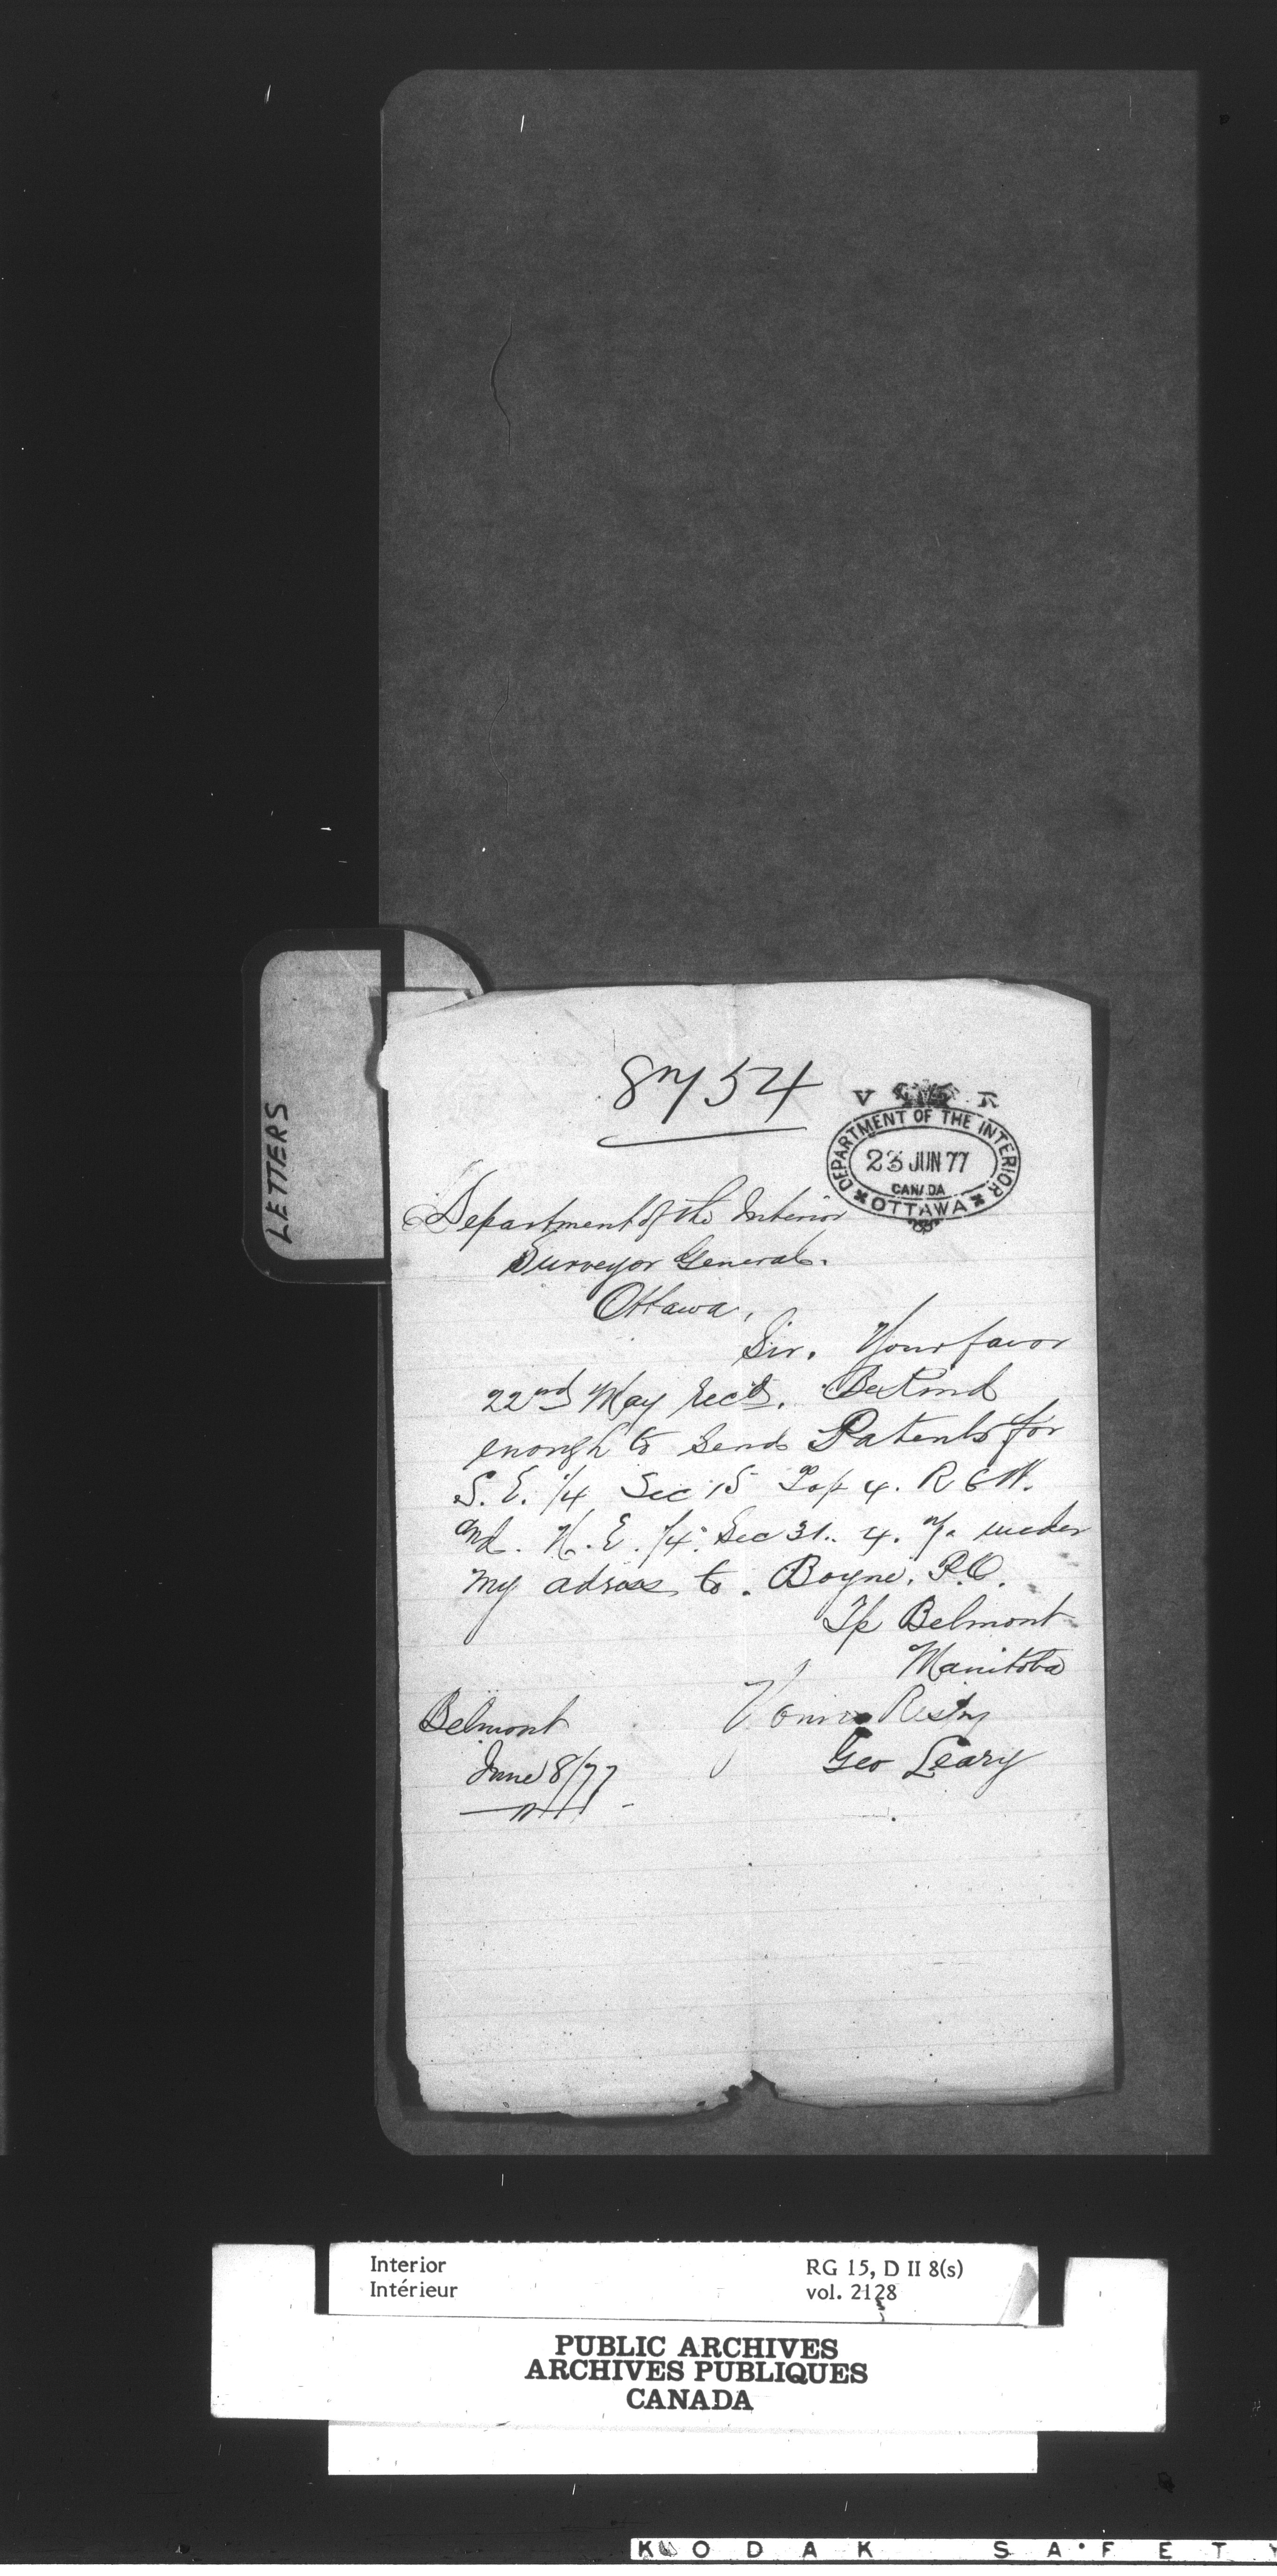 8754
V R
DEPARTMENT OF THE INTERIOR
23 JUN 77
CANADA
OTTAWA
LETTERS
Department of the Interior
Surveyor General.
Ottawa,
Sir. Your favor
22nd May recd. Be Kind
enough to send Patents for
S. E. 1/4 Sec 15 Top 4. R 6 W.
and. N. E. 1/4. Sec 31. 4. 7. under
my adress to. Boyne, P.O.
Tp Belmont
Manitoba
Yours Resty
Belmont
Geo Leary
June 8/77
Interior
Intérieur
RG 15, D II 8(s)
vol. 2128
PUBLIC ARCHIVES
ARCHIVES PUBLIQUES
CANADA
KODAK SAFETY